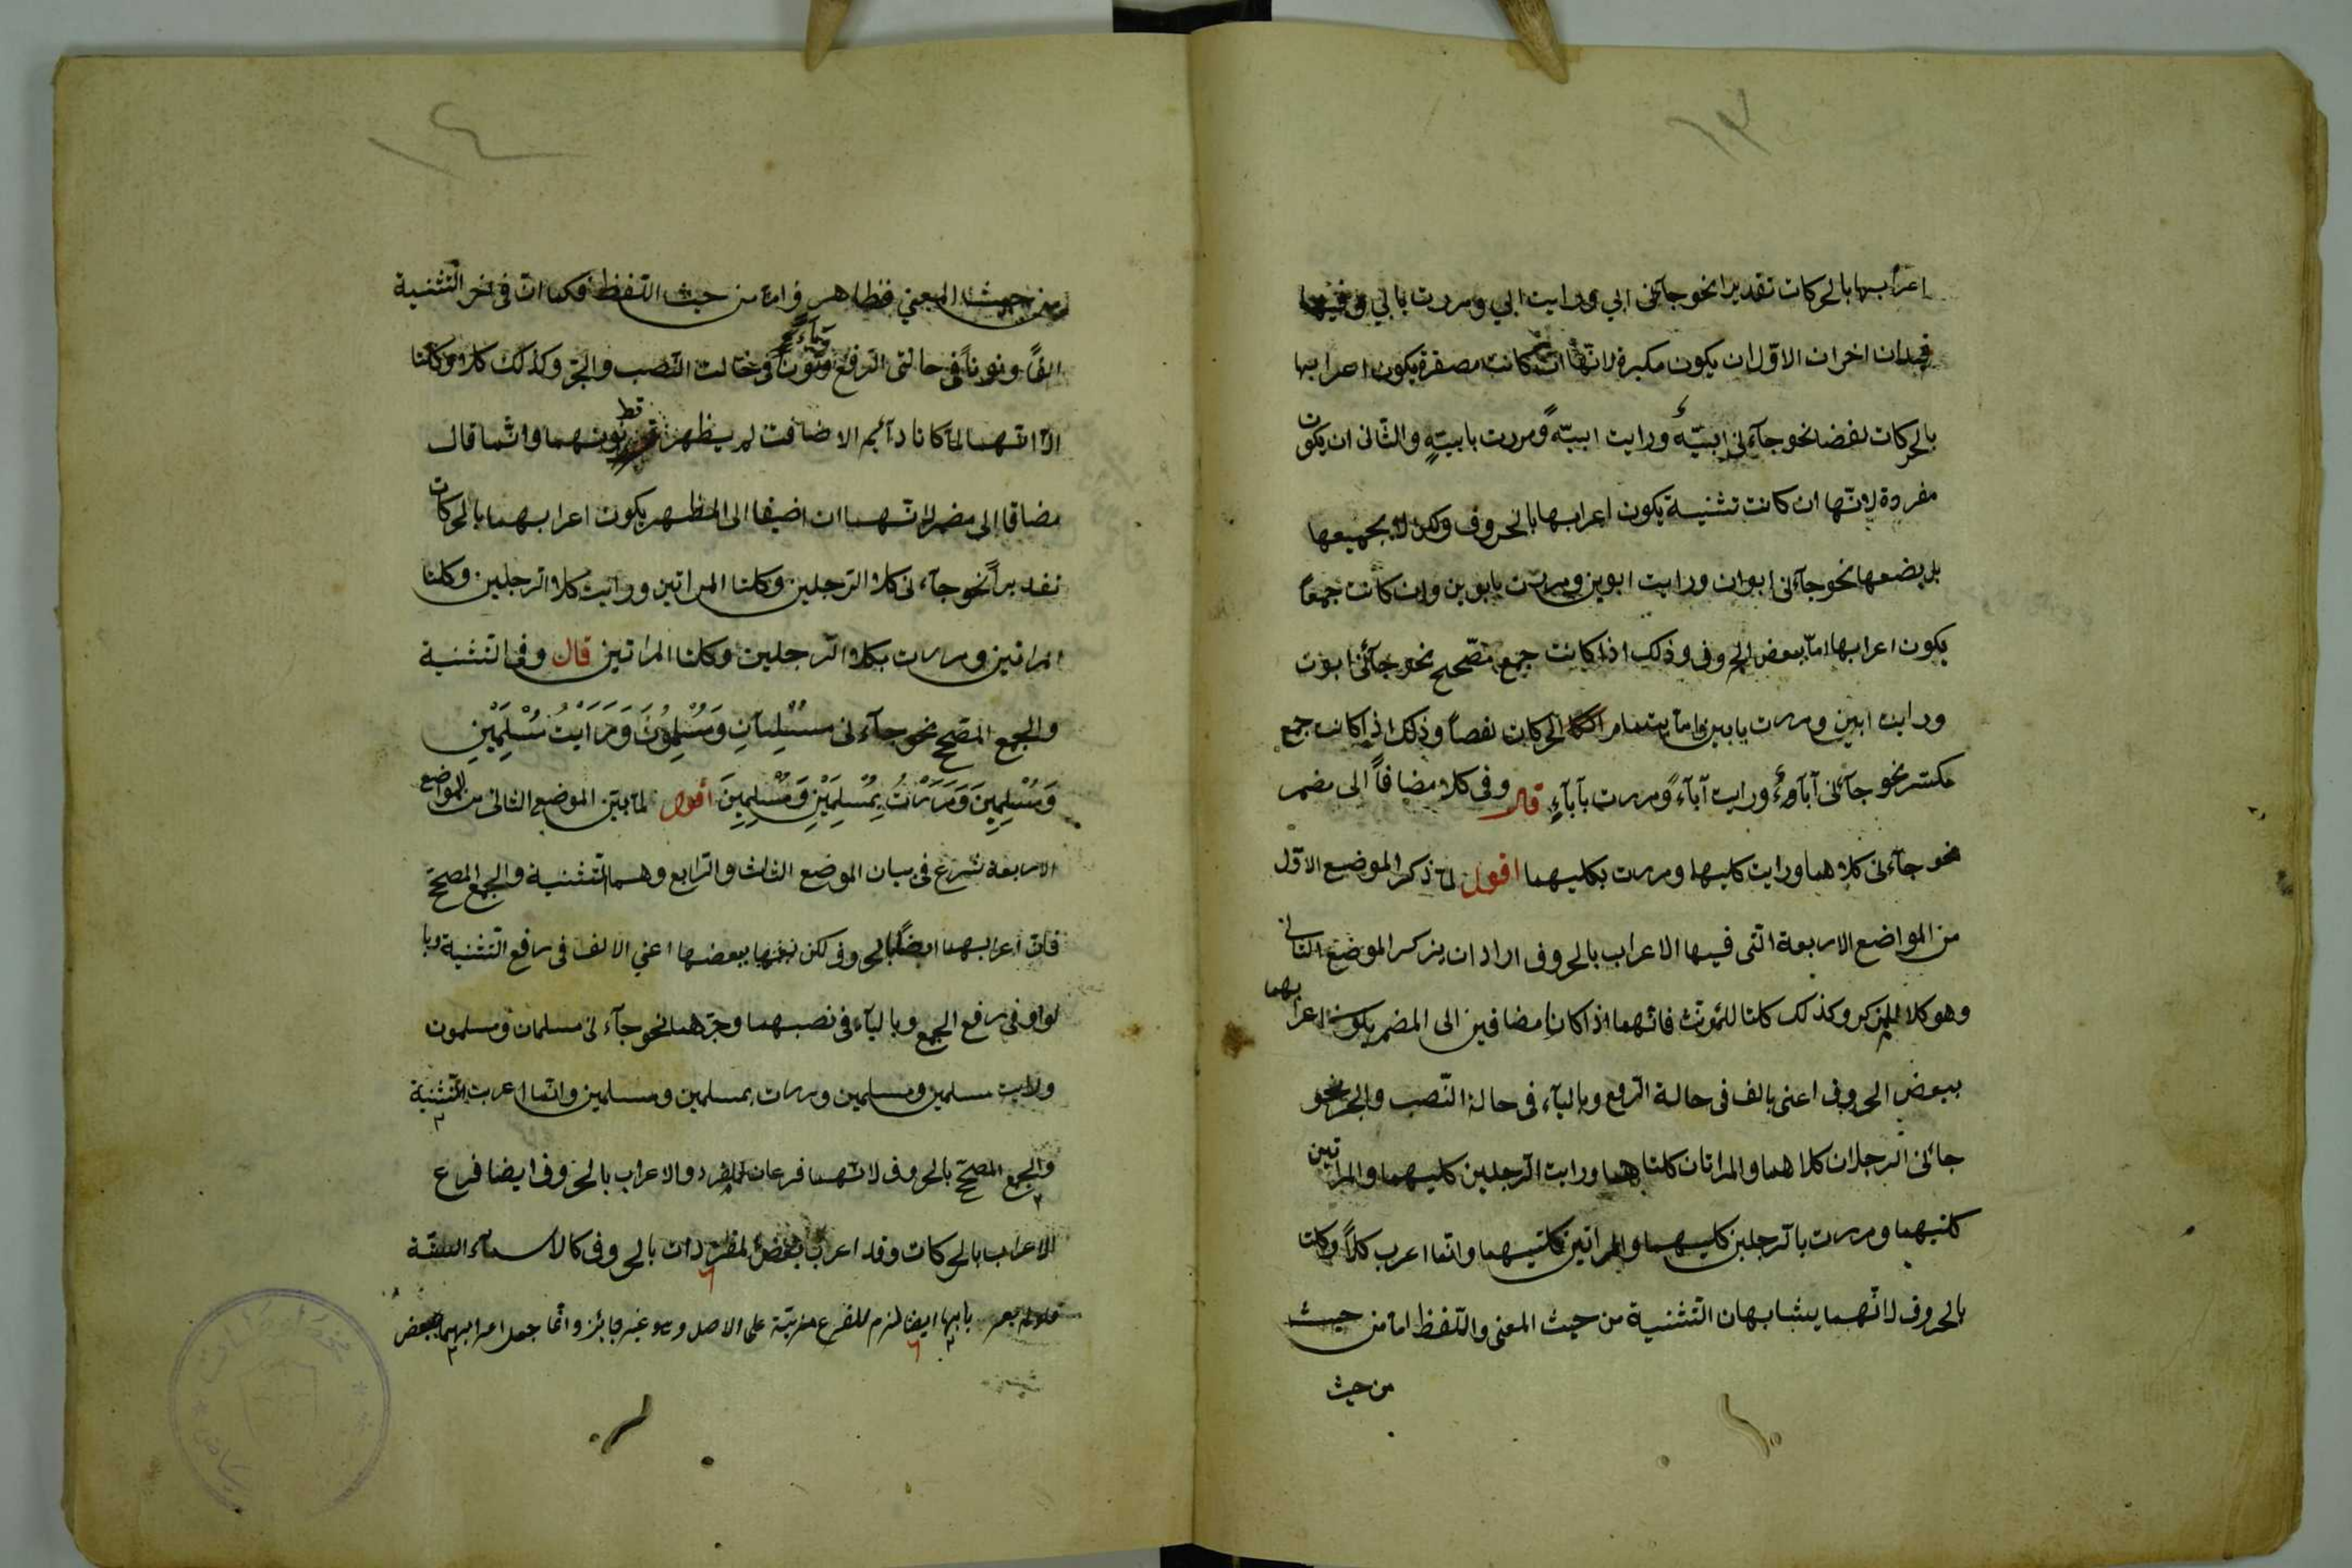 ١٣
اعرابها بالحركات تقديرا نحو جآئنى ابي ورايت ابي ومررت بابي وفيها
قيدان اخران الاوّل ان يكون مكبرة لانّها ان كانت مصغرة يكون اعرابها
بالحركات لفضا نحو جآءنى ابيّهٌ ورايت ابيّهً ومررت بابيّةٍ والثّانى ان يكون
مفردة لانّها ان كانت تثنية يكون اعرابها بالحروف ولكن لا بجميعها
بل ببضعها نحو جآئنى ابوان ورايت ابوين ومررت بابوين وان كانت جمعاً
يكون اعرابها امّا ببعض الحروف وذلك اذا كانت جمع مصّحح نحو جآئنى ابون
ورايت ابين ومررت بابين وامّا بتمام الحركات لفصاً وذلك اذا كانت جمع
مكسّر نحو جآئنى آبآءٌ ورايت آبآءً ومررت بآبآءٍ قال وفى كلا مضافاً الى مضمر
نحو جآءنى كلاهما ورايت كليهما ومررت بكليهما اقول لمّا ذكر الموضع الاوّل
من المواضع الاربعة الّتى فيها الاعراب بالحروف اراد ان يذكر الموضع الثانى
وهو كلا للمذكر وكذلك كلتا للمؤنّث فانّهما اذا كانا مضافين الى المضمر يكون اعرابهما
ببعض الحروف اعنى بالف فى حالة الرّفع وباليآء فى حالة النّصب والجرّ نحو
جائنى الرجلان كلاهما والمراتان كلتاهما ورايت الرّجلين كليهما والمراتين
كلتيهما ومررت بالرّجلين كليهما والمراتين كلتيهما وانّما اعرب كلاً وكلتا
بالحروف لانّهما يشابهان التّثنية من حيث المعنى واللّفظ امّا من حيث
من حيث
١٤
من حيث المعنى فظاهر وامّا من حيث اللّفظ فكما انّ فى اخر التّثنية
الفاً ونوناً فى حالتى الرّفع ويآءً ونوناً فى حالت النّصب والجرّ وكذلك كلا وكلتا
الّا انّهما لمّا كانا دآئم الاضافت لم يظهر قط نونهما وانّما قال
مضافا الى مضمر لانّهما ان اضيفا الى المظهر يكون اعرابهما بالحركات
تقديراً نحو جآءنى كلا الرّجلين وكلتا المراتين ورايت كلا الرّجلين وكلتا
المراتين ومررت بكلا الرّجلين وكلتا المراتين قال وفى التّثنية
والجمع المصّحح نحو جآءنى مُسْلِمَانِ وَمُسْلِمُونَ وَرَاَيْتُ مُسْلِمَيْنِ
وَمُسْلِمِينَ وَمَرَرْتُ بِمُسْلِمَيْنِ وَمُسْلِمِينَ أقول لمّا بيّن الموضع الثانى من المواضع
الاربعة شرع فى بيان الموضع الثالث والرّابع وهما التّثنية والجمع المصحّح
فانّ اعرابهما ايضاً بالحروف لكن ببعضها اعني الالف فى رفع التّثنية وبا
لواو فى رفع الجمع وباليآء فى نصبهما وجرّهما نحو جآءنى مسلمان ومسلمون
ورايت مسلمين ومسلمين ومررت بمسلمين ومسلمين وانّما اعربت التّثنية
والجمع المصحّح بالحروف لانّهما فرعان للمفرد والاعراب بالحروف ايضا فرع
للاعراب بالحركات وقد اعرب بعض المفردات بالحروف كالاسمآء السّتّة
فلو لم يعرب بابها ايضا لزم للفرع مزيّة على الاصل وهو غير جائز وانّما جعل اعرابهما ببعض